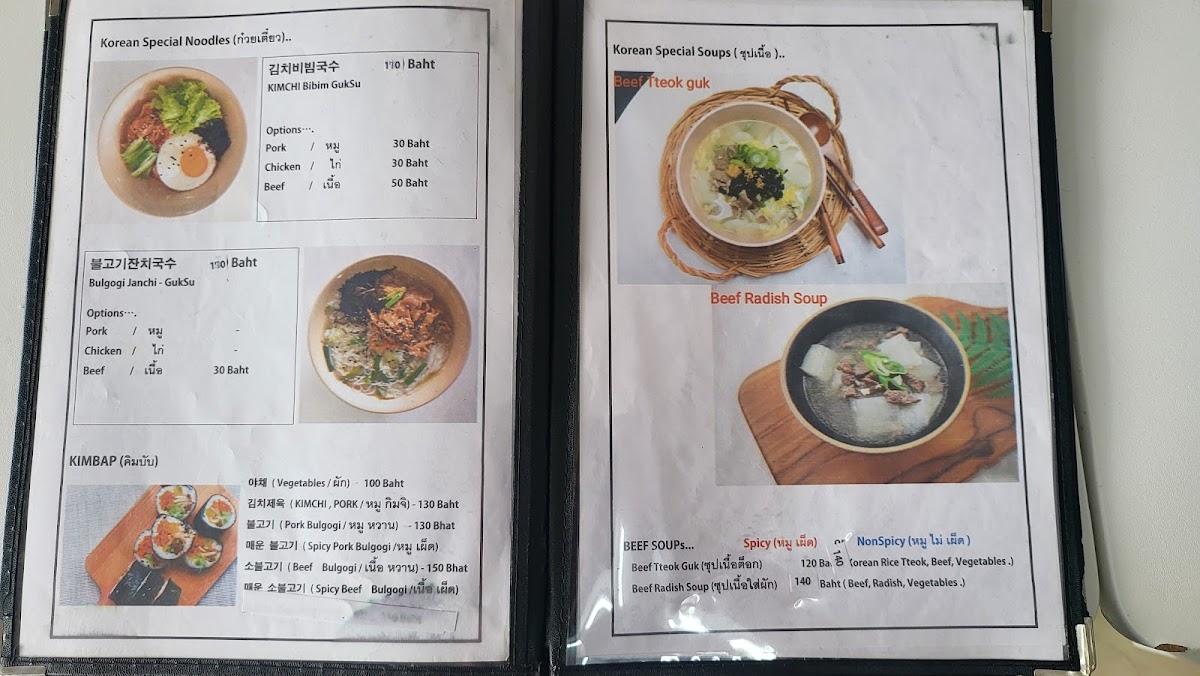 Korean Special Noodles (ก๋วยเตี๋ยว)..
김치비빔국수 Baht
KIMCHI Bibim GukSu
Options….
Pork / หมู 30 Baht
Chicken / ไก่ 30 Baht
Beef / เนื้อ 50 Baht
불고기잔치국수 Baht
Bulgogi Janchi - GukSu
Options….
Pork / หมู -
Chicken / ไก่ -
Beef / เนื้อ 30 Baht
KIMBAP (คิมบับ)
야채 ( Vegetables / ผัก) - 100 Baht
김치제육 ( KIMCHI , PORK / หมู กิมจิ) - 130 Baht
불고기 ( Pork Bulgogi / หมู หวาน) - 130 Bhat
매운 불고기 ( Spicy Pork Bulgogi /หมู เผ็ด)
소불고기 ( Beef Bulgogi / เนื้อ หวาน) - 150 Bhat
매운 소불고기 ( Spicy Beef Bulgogi /เนื้อ เผ็ด)
Korean Special Soups ( ซุปเนื้อ )..
Beef Tteok guk
Beef Radish Soup
BEEF SOUPs... Spicy (หมู เผ็ด) NonSpicy (หมู ไม่ เผ็ด )
Beef Tteok Guk (ซุปเนื้อต็อก) 120 Ba orean Rice Tteok, Beef, Vegetables .)
140
Beef Radish Soup (ซุปเนื้อใส่ผัก) 140 Baht ( Beef, Radish, Vegetables .)